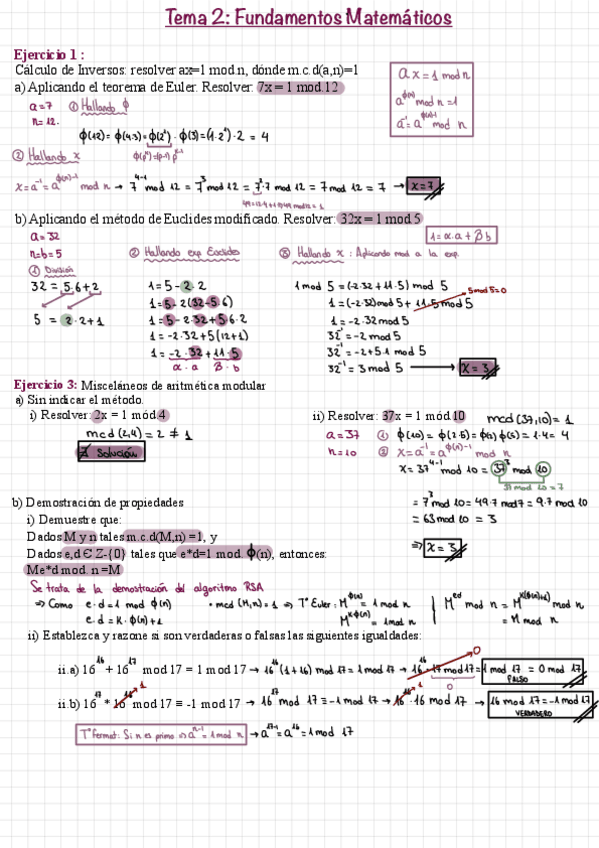 Tema 2: Fundamentos Matemáticos
Ejercicio 1 :
Cálculo de Inversos: resolver ax=1 mod n, dónde m.c.d(a,n)=1
a) Aplicando el teorema de Euler. Resolver: 7x = 1 mod 12
ax = 1 mod n
a^ϕ(n) mod n = 1
a⁻¹ = a^ϕ(n)-1 mod n
a=7 ① Hallando ϕ
n=12.
ϕ(12) = ϕ(4·3) = ϕ(2²) · ϕ(3) = (1·2¹) · 2 = 4
② Hallando x
ϕ(pᵏ) = (p-1) pᵏ⁻¹
x = a⁻¹ = a^ϕ(n)-1 mod n → 7⁴⁻¹ mod 12 = 7³ mod 12 = 7²·7 mod 12 = 7 mod 12 = 7 → x=7
b) Aplicando el método de Euclides modificado. Resolver: 32x = 1 mod 5
1 = α·a + β b
a = 32
n=b=5
② Hallando exp Euclides
③ Hallando x : Aplicando mod a la exp.
① División
32 = 5·6+2
5 = 2·2+1
1 = 5 - 2·2
1 = 5 - 2(32-5·6)
1 = 5 - 2·32 + 5·6·2
1 = -2·32 + 5(12+1)
1 = -2·32 + 11·5
α·a β·b
1 mod 5 = (-2·32 + 11·5) mod 5
5 mod 5=0
1 = (-2·32) mod 5 + 11·5 mod 5
1 = -2·32 mod 5
32⁻¹ = -2 mod 5
32⁻¹ = -2+5·1 mod 5
32⁻¹ = 3 mod 5 → x = 3
Ejercicio 3: Misceláneos de aritmética modular
a) Sin indicar el método.
i) Resolver: 2x = 1 mód 4
mcd (2,4) = 2 ≠ 1
∄ Solución
ii) Resolver: 37x = 1 mód 10 mcd (37,10) = 1
a = 37 ① ϕ(10) = ϕ(2·5) = ϕ(2) ϕ(5) = 1·4 = 4
n = 10 ② x = a⁻¹ = a^ϕ(n)-1 mod n
x = 37⁴⁻¹ mod 10 = 37³ mod 10
37 mod 10 = 7
= 7³ mod 10 = 49·7 mod 7 = 9·7 mod 10
= 63 mod 10 = 3
⇒ x = 3
b) Demostración de propiedades
i) Demuestre que:
Dados M y n tales m.c.d(M,n) =1, y
Dados e,d Є Z-{0} tales que e*d=1 mod. ϕ(n), entonces:
Me*d mod. n =M
Se trata de la demostración del algoritmo RSA
⇒ Como e·d = 1 mod ϕ(n)
e·d = K·ϕ(n)+1
• mcd (M,n) = 1 ⇒ Tª Euler : M^ϕ(n) = 1 mod n
M^K·ϕ(n) = 1 mod n
M^ed mod n = M^K(ϕ(n)+1) mod n
= M mod n
ii) Establezca y razone si son verdaderas o falsas las siguientes igualdades:
ii.a) 16¹⁶ + 16¹⁷ mod 17 = 1 mod 17 → 16¹⁶ (1 + 16) mod 17 = 1 mod 17 → 16¹⁶ · 17 mod 17 = 1 mod 17 = 0 mod 17
0
0
FALSO
ii.b) 16¹⁷ * 16¹⁶ mod 17 ≡ -1 mod 17 → 16¹⁷ mod 17 ≡ -1 mod 17 → 16¹⁶ · 16 mod 17 → 16 mod 17 = -1 mod 17
1
1
VERDADERO
Tª fermat: Si n es primo ⇒ aⁿ⁻¹ = 1 mod n → a¹⁷⁻¹ = a¹⁶ = 1 mod 17